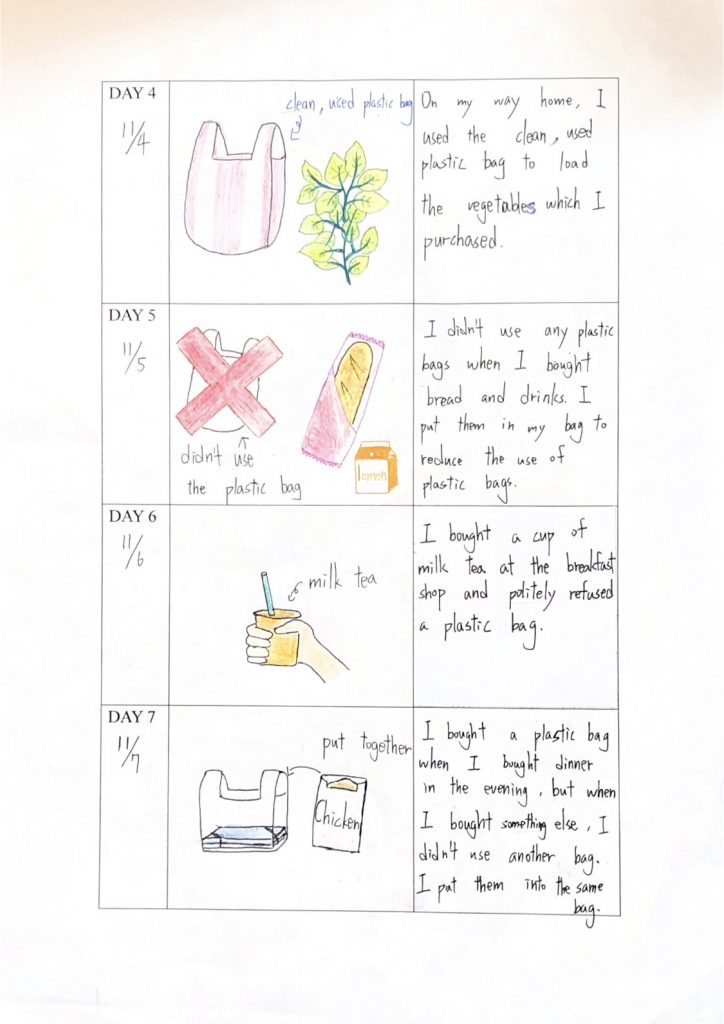 DAY 4
11/4
clean, used plastic bag
On my way home, I
used the clean, used
plastic bag to load
the vegetables which I
purchased.
DAY 5
11/5
didn't use
the plastic bag
lemon
I didn't use any plastic
bags when I bought
bread and drinks. I
put them in my bag to
reduce the use of
plastic bags.
DAY 6
11/6
milk tea
I bought a cup of
milk tea at the breakfast
shop and politely refused
a plastic bag.
DAY 7
11/7
put together
Chicken
I bought a plastic bag
when I bought dinner
in the evening, but when
I bought something else, I
didn't use another bag.
I put them into the same
bag.